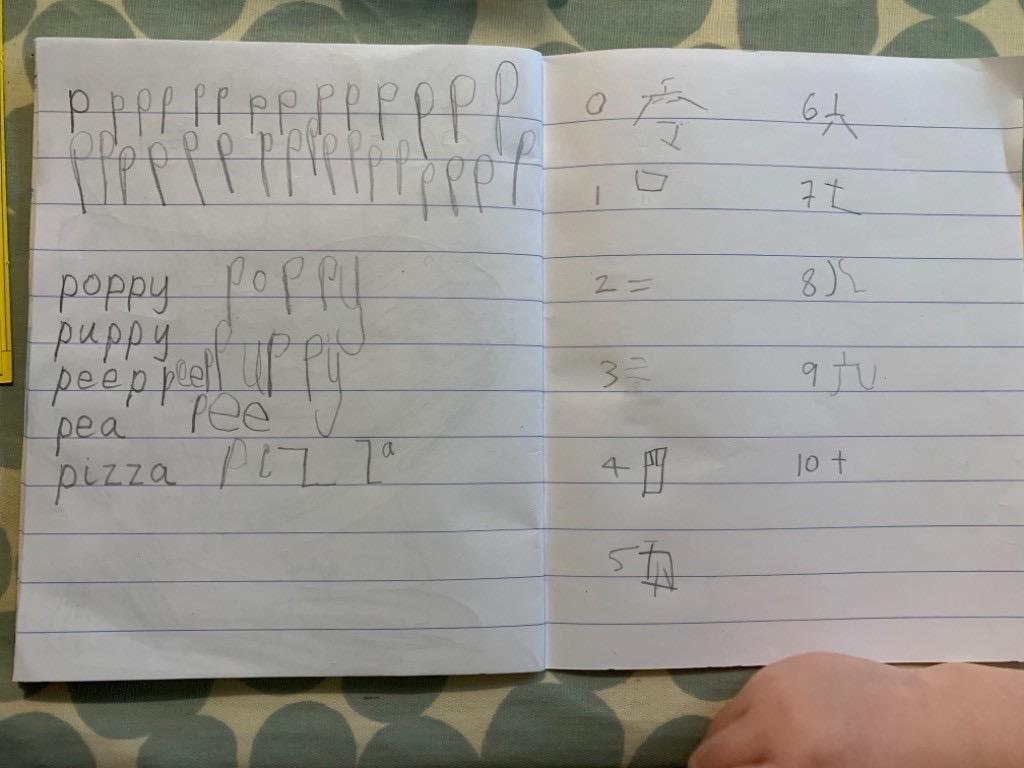 p p p p p p p p p p p p p p
p p p p p p p p p p p p p p p p p
poppy poppy
puppy puppy
peep peep
pea pee
pizza pizza
0 6 六
1 7 七
2 二 8 八
3 三 9 九
4 四 10 十
5 五